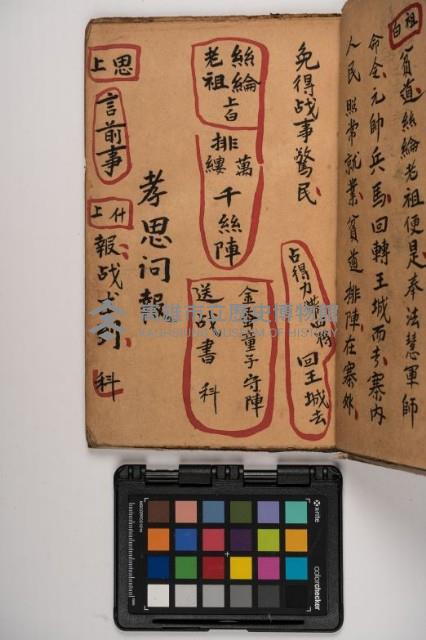 祖白
貧道絲綸老祖便是奉法慧軍師
命令元帥兵馬回轉王城而去寨内
人民照常就業貧道排陣在寨外
免得战事驚民
占得力 回王城去
絲綸老祖上白
排萬縷千絲陣
金童子守陣
送战書科
孝思问報
思上
言前事
什上
報战 科
高雄市立歷史博物館
KAOHSIUNG MUSEUM OF HISTORY
x-rite
colorchecker